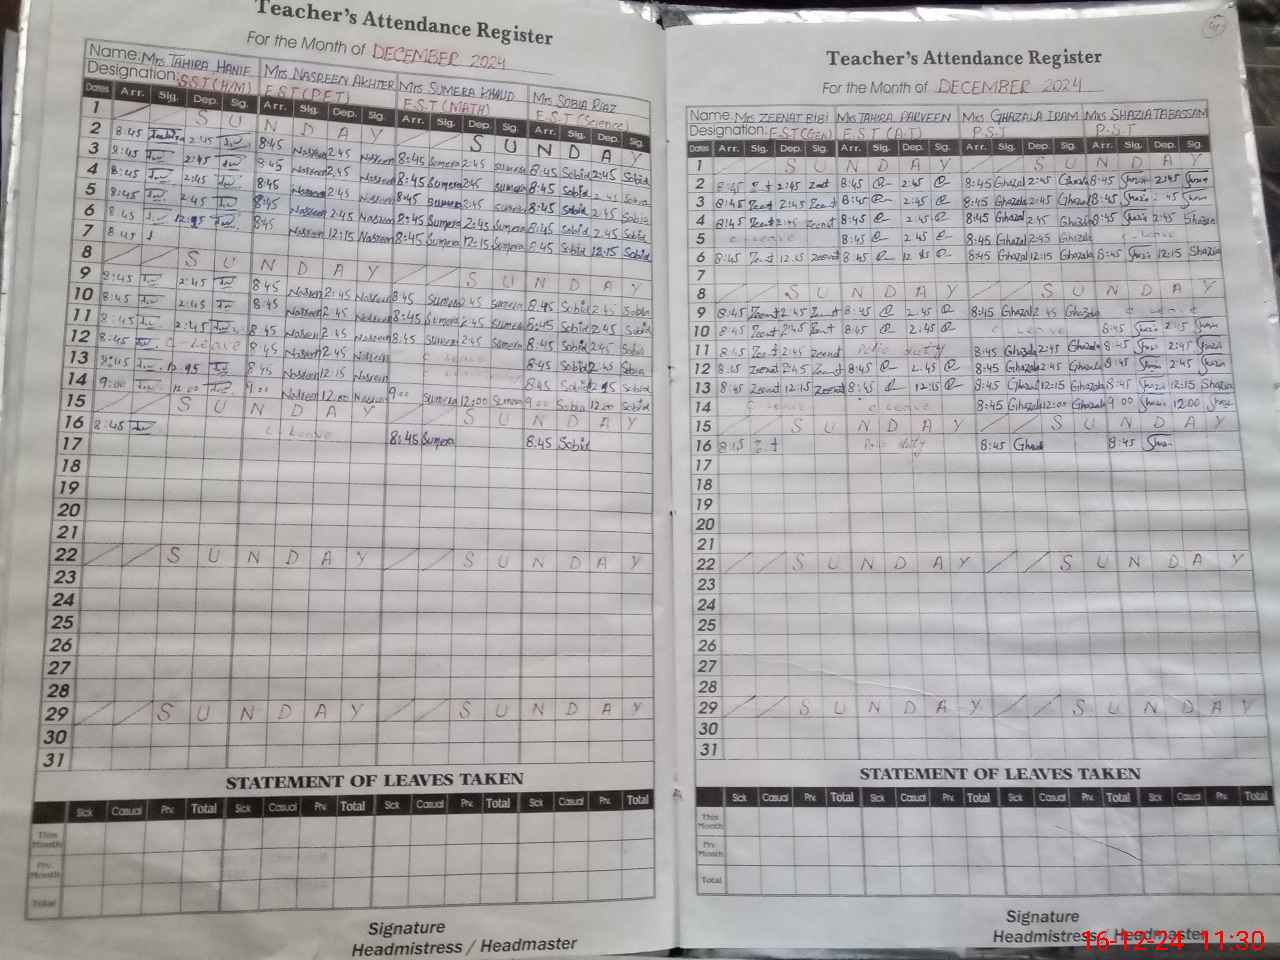 Teacher's Attendance Register
For the Month of DECEMBER 2024
Name: Mrs TAHIRA HANIF Mrs NASREEN AKHTER Mrs SUMERA KHALID Mrs SOBIA RIAZ
Designation: S.S.T (H/M) E.S.T (P.E.T) E.S.T (MATH) E.S.T (Science)
Dates Arr. Sig. Dep. Sig. Arr. Sig. Dep. Sig. Arr. Sig. Dep. Sig. Arr. Sig. Dep. Sig.
1 S U N D A Y S U N D A Y
2 8:45 2:45 8:45 Nasreen 2:45 Nasreen 8:45 Sumera 2:45 Sumera 8:45 Sobia 2:45 Sobia
3 8:45 2:45 8:45 Nasreen 2:45 Nasreen 8:45 Sumera 2:45 Sumera 8:45 Sobia 2:45 Sobia
4 8:45 2:45 8:45 Nasreen 2:45 Nasreen 8:45 Sumera 2:45 Sumera 8:45 Sobia 2:45 Sobia
5 8:45 2:45 8:45 Nasreen 2:45 Nasreen 8:45 Sumera 2:45 Sumera 8:45 Sobia 2:45 Sobia
6 8:45 8:45 Nasreen 12:15 Nasreen 8:45 Sumera 12:15 Sumera 8:45 Sobia 12:15 Sobia
7 8:45
8 S U N D A Y S U N D A Y
9 8:45 2:45 8:45 Nasreen 2:45 Nasreen 8:45 Sumera 2:45 Sumera 8:45 Sobia 2:45 Sobia
10 8:45 2:45 8:45 Nasreen 2:45 Nasreen 8:45 Sumera 2:45 Sumera 8:45 Sobia 2:45 Sobia
11 8:45 2:45 8:45 Nasreen 2:45 Nasreen 8:45 Sumera 2:45 Sumera 8:45 Sobia 2:45 Sobia
12 C Leave 8:45 Nasreen 2:45 Nasreen C Leave 8:45 Sobia 2:45 Sobia
13 8:45 8:45 Nasreen 12:15 Nasreen 8:45 Sobia Sobia
14 9:00 12:00 9:00 Nasreen 12:00 Nasreen 9:00 Sumera 12:00 Sumera 9:00 Sobia 12:00 Sobia
15 S U N D A Y S U N D A Y
16 8:45 C Leave 8:45 Sumera 8:45 Sobia
17
18
19
20
21
22 S U N D A Y S U N D A Y
23
24
25
26
27
28
29 S U N D A Y S U N D A Y
30
31
STATEMENT OF LEAVES TAKEN
Sick Casual Prv. Total Sick Casual Prv. Total Sick Casual Prv. Total Sick Casual Prv. Total
This Month
Prv. Month
Total
Signature
Headmistress / Headmaster
Teacher's Attendance Register
For the Month of DECEMBER 2024
Name: Mrs ZEENAT BIBI Mrs TAHIRA PARVEEN Mrs GHAZALA IRAM Mrs SHAZIA TABASSAM
Designation: E.S.T (Gen) E.S.T (A.T) P.S.T P.S.T
Dates Arr. Sig. Dep. Sig. Arr. Sig. Dep. Sig. Arr. Sig. Dep. Sig. Arr. Sig. Dep. Sig.
1 S U N D A Y S U N D A Y
2 8:45 2:45 Zeenat 8:45 2:45 8:45 Ghazal 2:45 Ghazala 8:45 Shazia 2:45 Shazia
3 8:45 Zeenat 2:45 Zeenat 8:45 2:45 8:45 Ghazal 2:45 Ghazala 8:45 Shazia 2:45 Shazia
4 8:45 Zeenat 2:45 Zeenat 8:45 2:45 8:45 Ghazal 2:45 Ghazala 8:45 Shazia 2:45 Shazia
5 C Leave 8:45 2:45 8:45 Ghazal 2:45 Ghazala C Leave
6 8:45 12:15 Zeenat 8:45 8:45 Ghazal 12:15 Ghazala 8:45 Shazia 12:15 Shazia
7
8 S U N D A Y S U N D A Y
9 8:45 Zeenat 2:45 Zeenat 8:45 2:45 8:45 Ghazal 2:45 Ghazala C Leave
10 8:45 Zeenat 2:45 Zeenat 8:45 2:45 C Leave 8:45 Shazia 2:45 Shazia
11 8:45 Zeenat 2:45 Zeenat Polio duty 8:45 Ghazala 2:45 Ghazala 8:45 Shazia 2:45 Shazia
12 8:45 Zeenat 2:45 Zeenat 8:45 2:45 8:45 Ghazala 2:45 Ghazala 8:45 Shazia 2:45 Shazia
13 8:45 Zeenat 12:15 Zeenat 8:45 12:15 8:45 Ghazal 12:15 Ghazala 8:45 Shazia 12:15 Shazia
14 C Leave C Leave 8:45 Ghazala 12:00 Ghazala 9:00 Shazia 12:00 Shazia
15 S U N D A Y S U N D A Y
16 8:45 Polio duty 8:45 Ghazala 8:45 Shazia
17
18
19
20
21
22 S U N D A Y S U N D A Y
23
24
25
26
27
28
29 S U N D A Y S U N D A Y
30
31
STATEMENT OF LEAVES TAKEN
Sick Casual Prv. Total Sick Casual Prv. Total Sick Casual Prv. Total Sick Casual Prv. Total
This Month
Prv. Month
Total
Signature
Headmistress / Headmaster
16-12-24 11:30